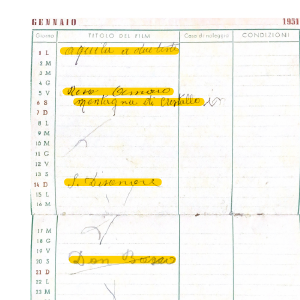 GENNAIO 1951
Giorno TITOLO DEL FILM Casa di noleggio CONDIZIONI
1 L aquila a due teste
2 M
3 M
4 G
5 V
6 S montagna di cristallo
7 D
8 L
9 M
10 M
11 G
12 V
13 S
14 D S.
15 L
16 M
17 M
18 G
19 V
20 S Don Bosco
21 D
22 L
23 M